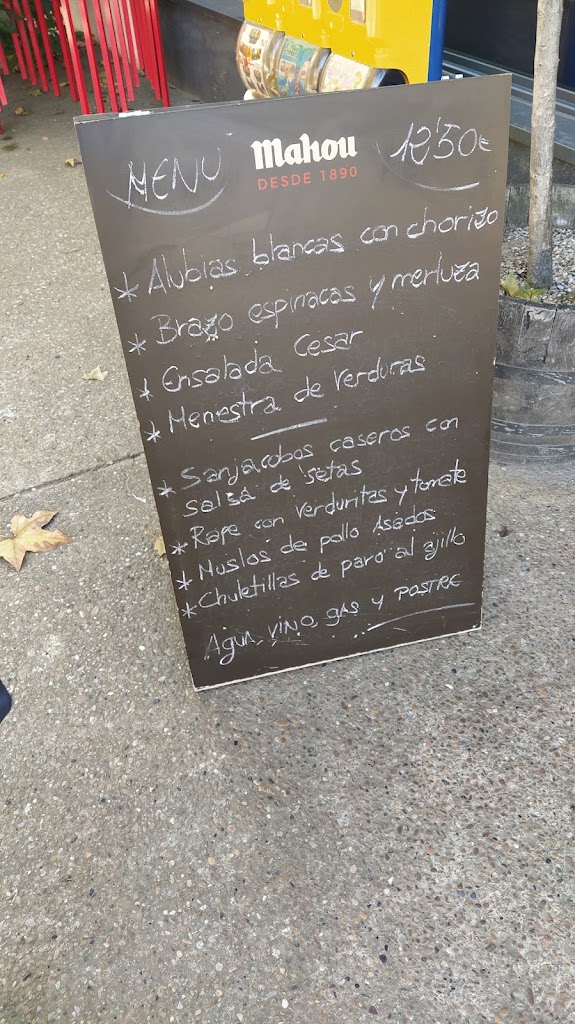 MENU Mahou 12'50€
DESDE 1890
* Alubias blancas con chorizo
* Brazo espinacas y merluza
* Ensalada Cesar
* Menestra de verduras
* Sanjacobos caseros con
salsa de setas
* Rape con verduritas y tomate
* Muslos de pollo Asados
* Chuletillas de pavo al ajillo
Agua, vino, gas y POSTRE